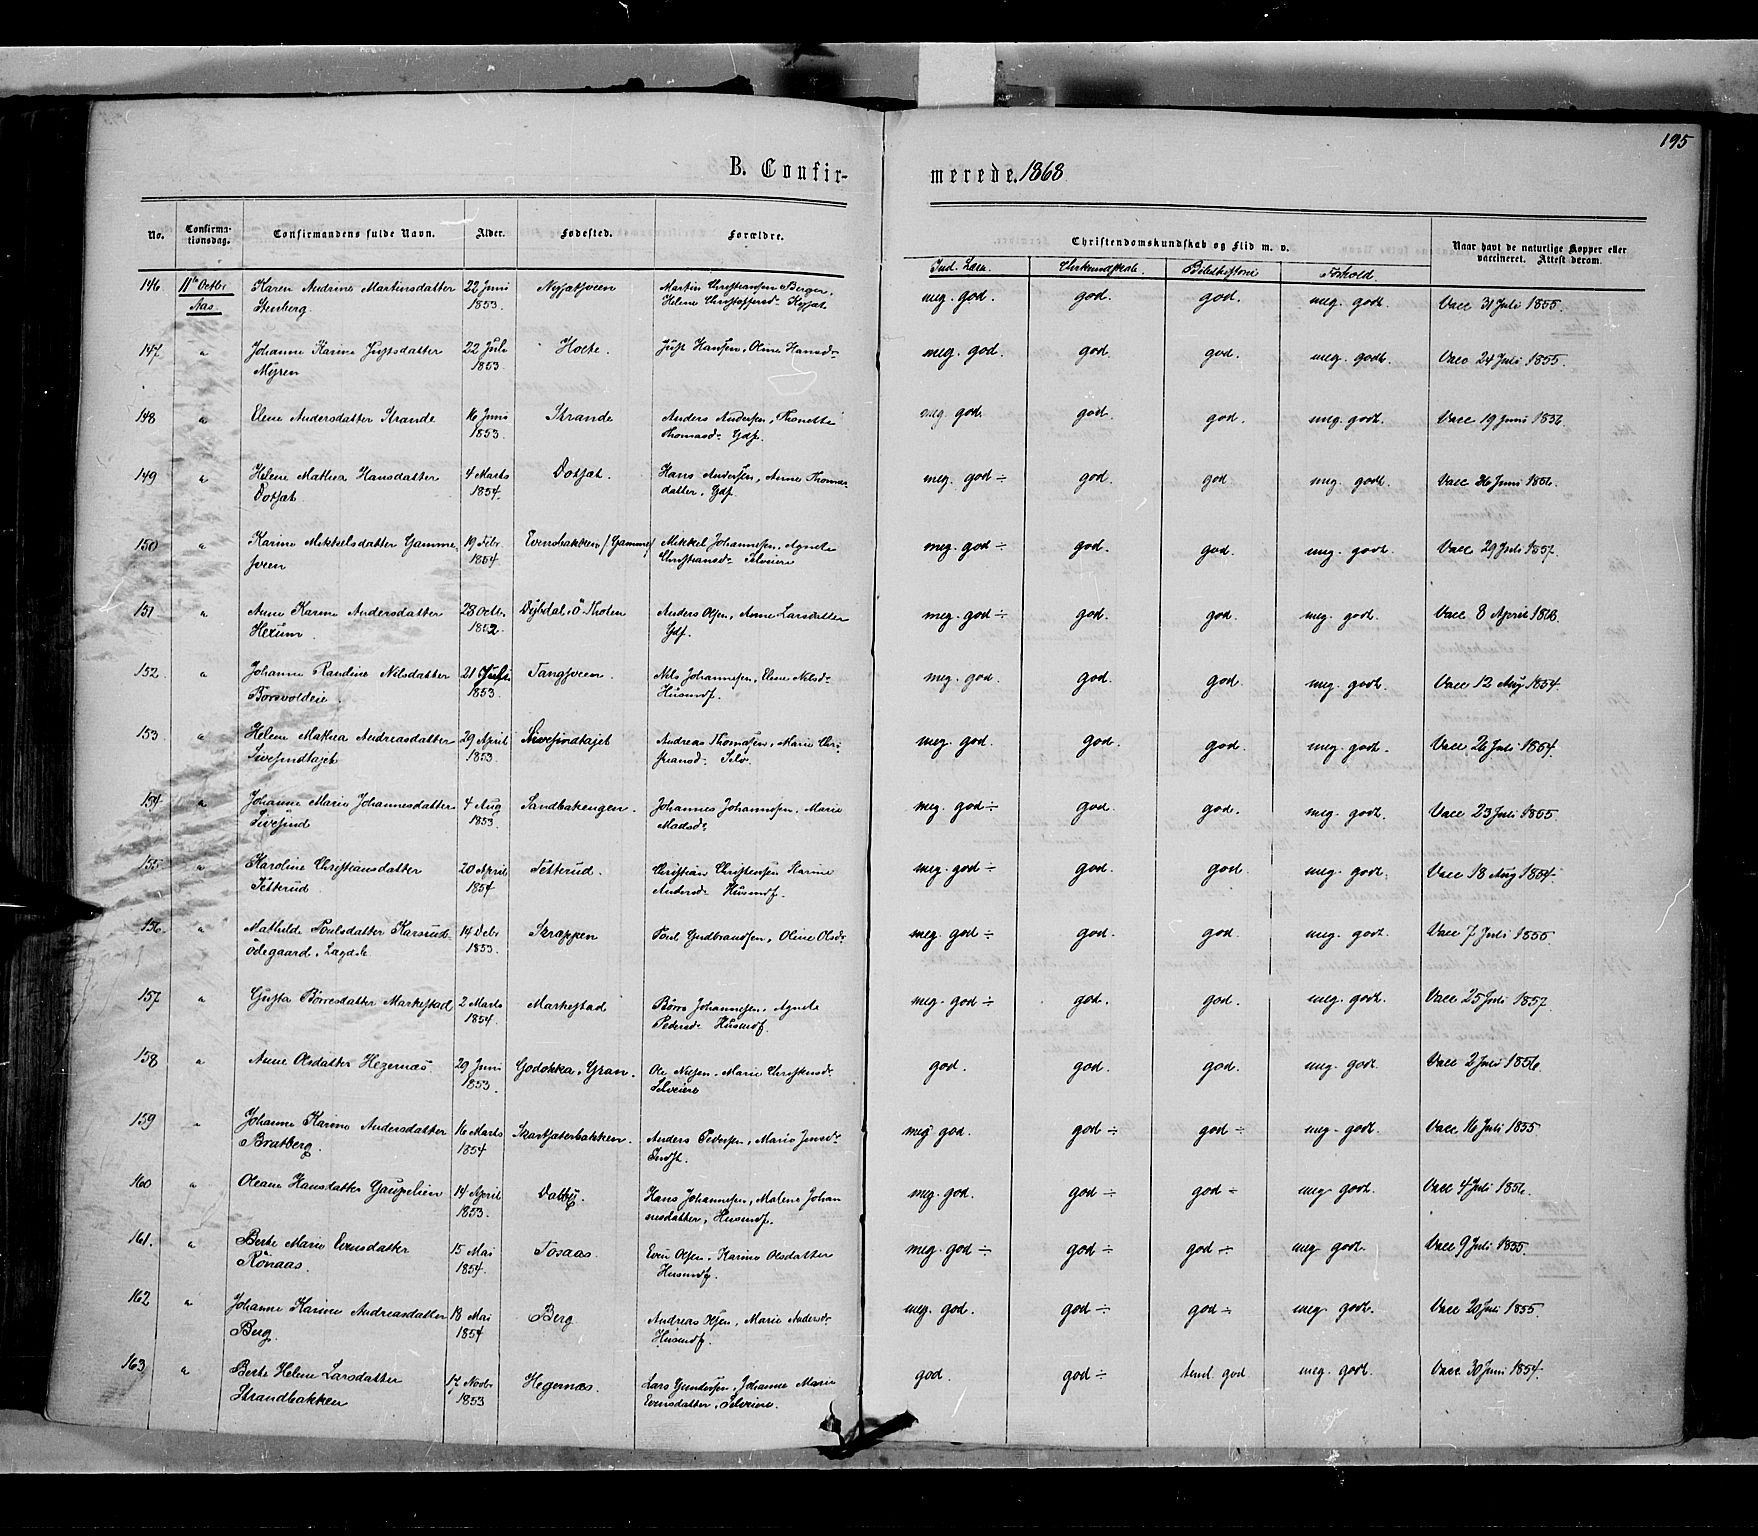 195
B. Confir-
merede. 1868
No. Confirma-tionsdag. Confirmandens fulde Navn. Alder. Fødested. Forældre. Christendomskundskab og Flid m. v. Naar havt de naturlige Kopper eller vaccineret. Attest derom.
Forhold.
146 11te Octbr Karen Andrine Martinsdatter 22 Juni Martin Christiansen Berger, meg. god. god. god. meg. godt. Vacc 31 Juli 1855.
Aas Stenberg. 1853. Helene Christoffersd:
147 " Johanne Karine Justsdatter 22 Juli Hoele. Just Hansen, Oline Hansd: meg. god. god. god. meg. godt. Vacc 24 Juli 1855.
Myren 1853.
148 " Elene Andersdatter Strande 16 Juni Strande Anders Andersen, Thonette meg. god. god. god. meg. godt. Vacc 19 Juni 1856.
1853. Thomasd: Gdf.
149 " Helene Mathea Hansdatter 4 Marts Hans Andersen, Anne Thomas meg. god ÷ god. god meg. godt. Vacc 26 Juni 1856.
1854. datter, Gdf.
150 " Karine Mikkelsdatter Gamme 19 Febr. Evensbakken / Gamme / Mikkel Johannesen, Agnete meg. god ÷ god. god. meg. godt. Vacc 29 Juli 1857.
sveen 1854 Christiansd: Selveiere
151 " Anne Karine Andersdatter 28 Octbr Ø. Thoten Anders Olsen, Anne Larsdatter meg. god ÷ god. god. meg. godt. Vacc 8 April
Hexum. 1852. Gdf.
152. " Johanne Randine Nilsdatter 21 Juli Tangsveen. Nils Johannesen, Eline Nilsd: meg. god. god. god. meg. godt. Vacc 12 Aug 1854.
1853. Husmdf.
153 " Helene Mathea Andreasdatter 29 April Sivesindhajet Andreas Thomasen, Marie Chri- meg. god. god. god. meg. godt. Vacc 26 Juli 1854.
Sivesindhajet 1853. stiansd: Selv.
154 " Johanne Marie Johannesdatter 4 Aug Sandbakengen. Johannes Johannesen, Marie meg. god ÷ god. god. meg. godt. Vacc 23 Juli 1855.
Sivesind 1853. Madsd:
155 " Karoline Christiansdatter 20 April Tetterud. Christian Christensen Karine meg. god ÷ god. god. meg. godt. Vacc 18 Aug 1854.
Tetterud. 1854 Andersd: Husmdf.
156. " Mathilde Poulsdatter Karsrud- 14 Debr Skrappen Poul Gudbrandsen, Oline Olsd: meg. god ÷ god. god. meg. godt. Vacc 7 Juli 1855.
ødegaard. 1853.
157 " Gusta Børresdatter Markestad 2 Marts Markestad Børre Johannesen, Agnete meg. god ÷ god. god. meg. godt. Vacc 25 Juli 1857.
1854. Pedersd: Husmdf.
158 " Anne Olsdatter Hegernæs. 29 Juni Gran. Ole Nilsen, Marie Christensd: god. god. god. meg. godt. Vacc 2 Juli 1856.
1853. Selveiere
159 " Johanne Karine Andersdatter 16 Marts Anders Pedersen, Marie Jensd: meg. god. god ÷ god ÷ meg. godt. Vacc 16 Juli 1855
Bratberg. 1854 Indst.
160 " Oleane Hansdatter Gaupelien 14 April Dalby. Hans Johannesen, Malene Johan meg. god. god ÷ god ÷ meg. godt. Vacc 4 Juli 1856.
1853. nesdatter, Husmdf.
161. " Berte Marie Evensdatter 15 Mai Tosaas. Even Olsen, Karine Olsdatter meg. god ÷ god ÷ god ÷ meg. godt. Vacc 9 Juli 1855.
Rønaas. 1854. Husmdf.
162 " Johanne Karine Andreasdatter 18 Mai Berg Andreas Olsen, Marie Andersd: meg. god. god ÷ god ÷ meg. godt. Vacc 20 Juli 1855.
Berg. 1854 Husmdf.
163 " Berte Helene Larsdatter 17 Novbr Hegernæs. Lars Gundersen, Johanne Marie god. god ÷ teml. god meg. godt. Vacc 30 Juni 1854.
Strandbakken 1853 Evensdatter, Selveiere.